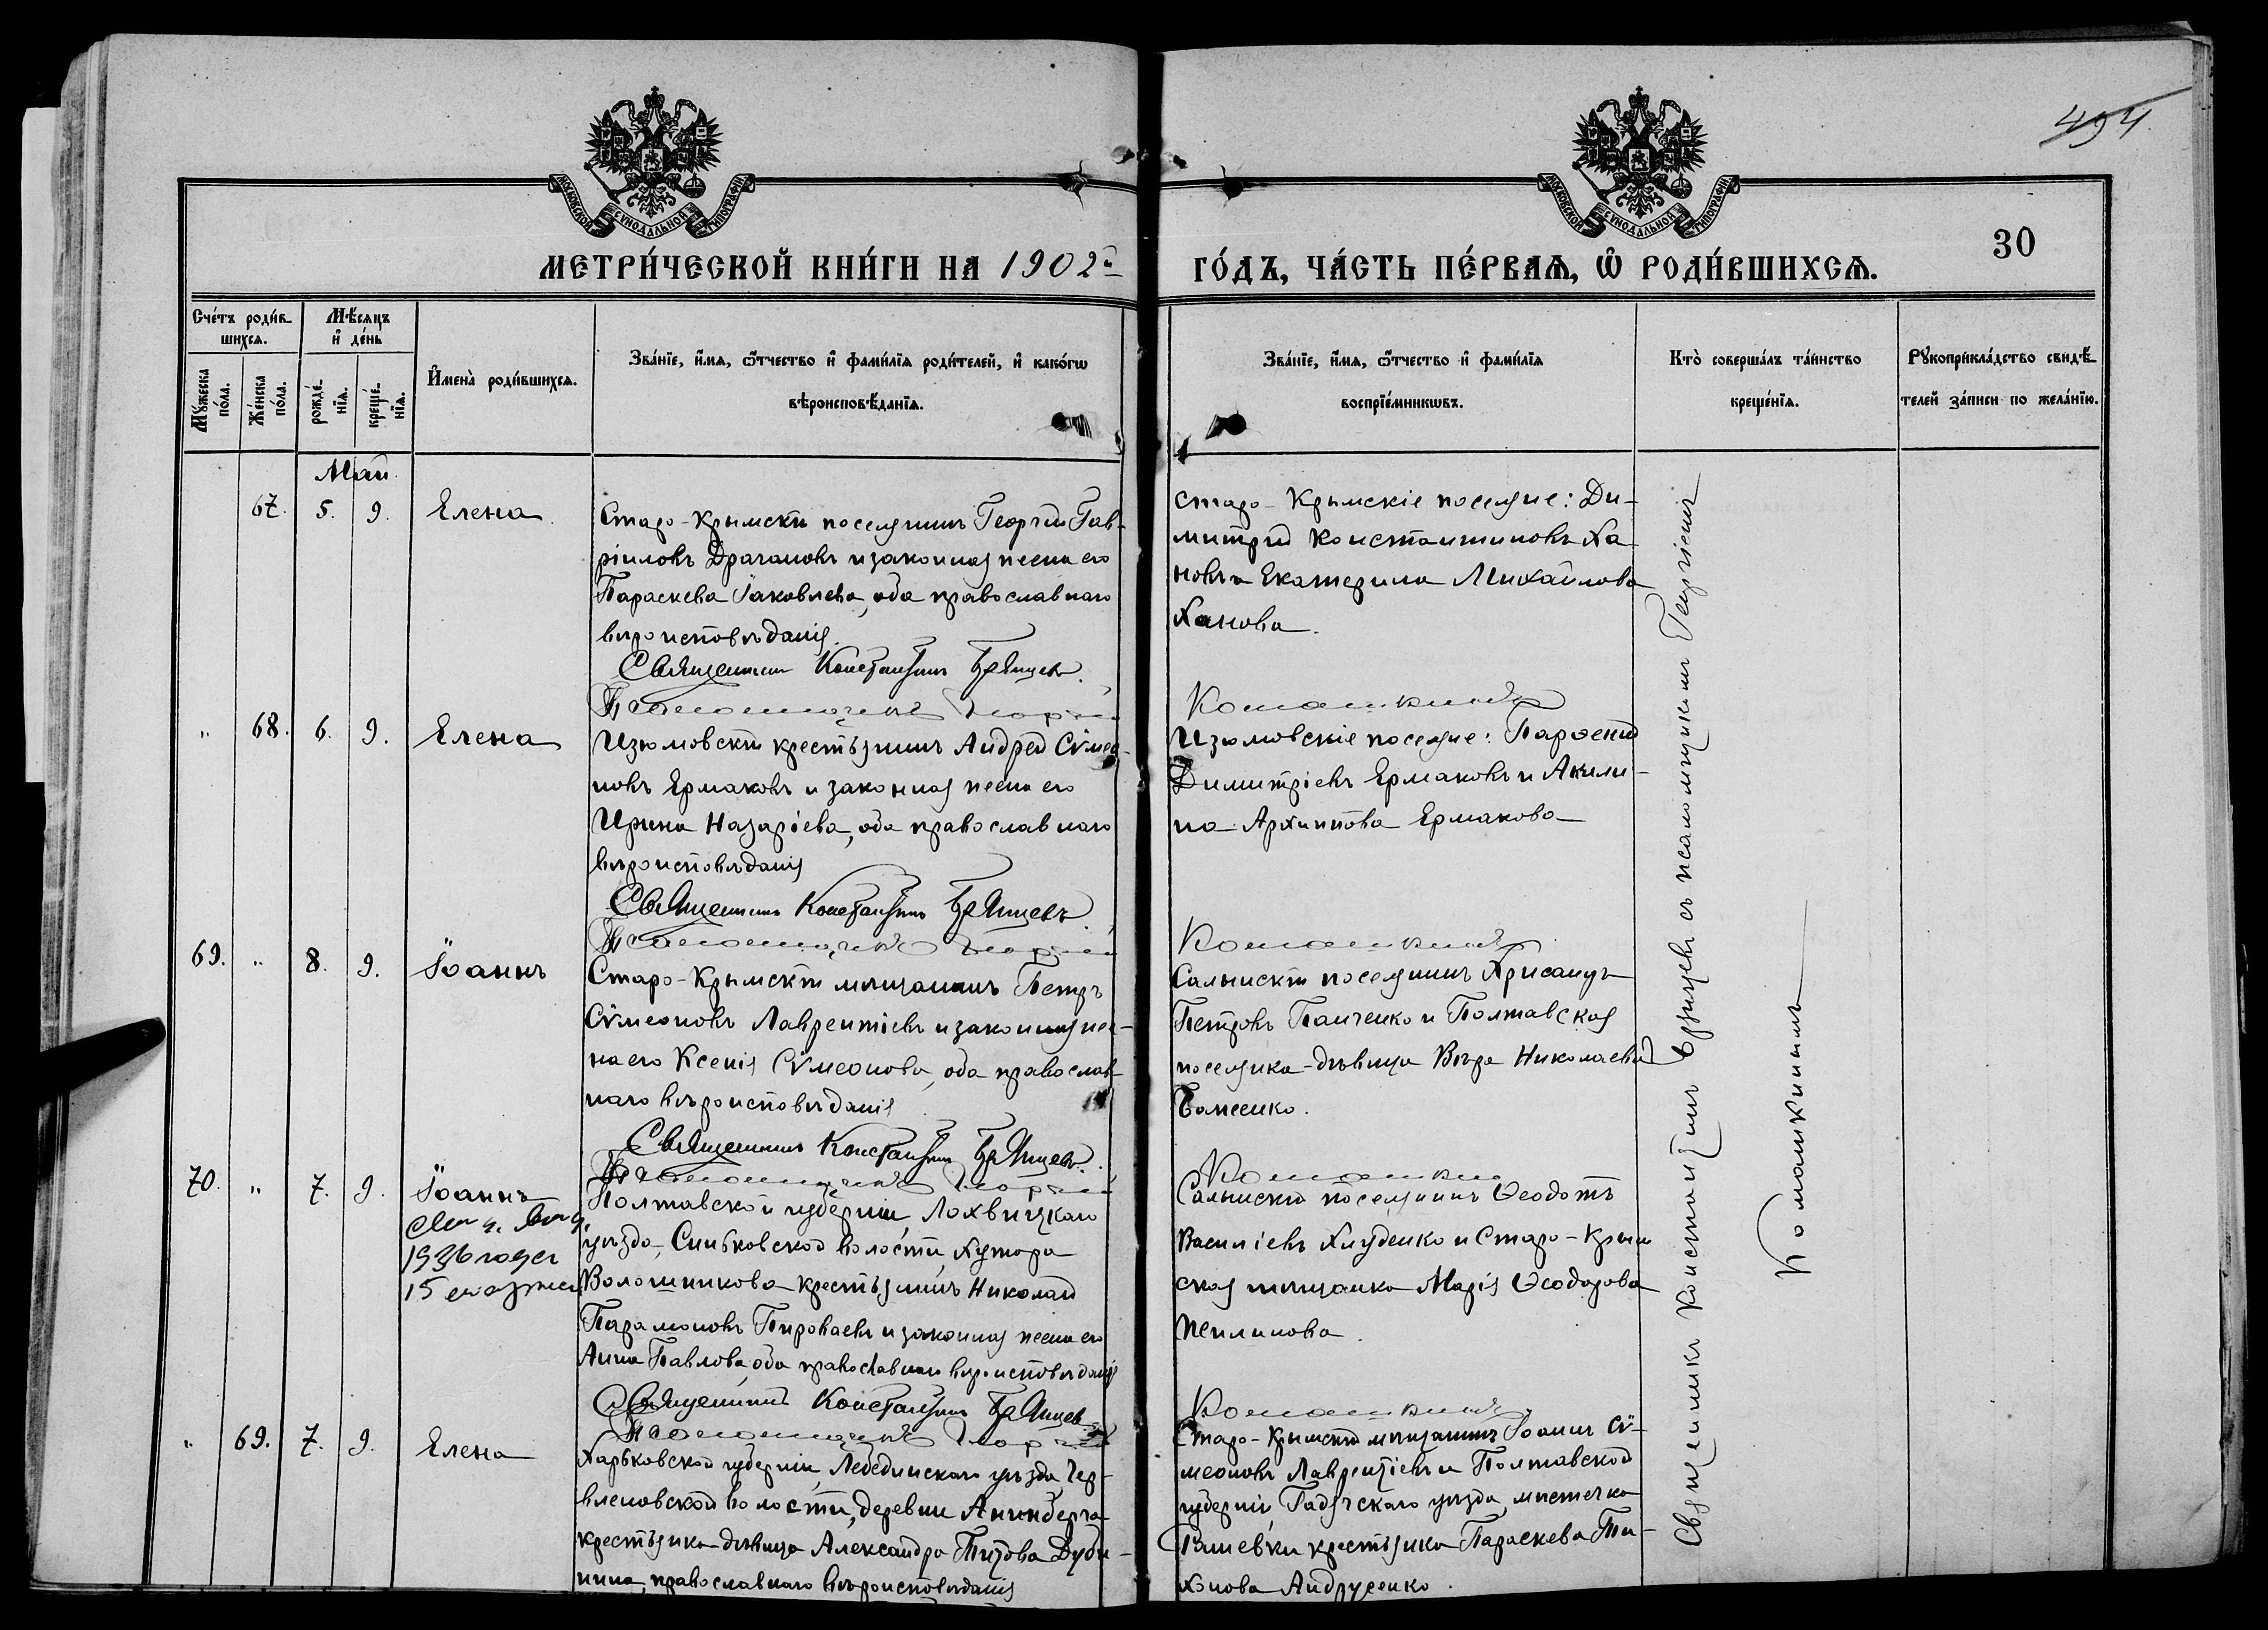 494.
МОСКОВСКОЙ СѴНОДАЛЬНОЙ ТИПОГРАФІИ
МОСКОВСКОЙ СѴНОДАЛЬНОЙ ТИПОГРАФІИ
30
МЕТРИ́ЧЕСКОЙ КНИ́ГИ НА 1902й ГО́ДЪ, ЧА́СТЬ ПЕ́РВАЯ, Ѡ҆ РОДИ́ВШИХСЯ.
Сче́тъ роди́в-
шихся.
Мꙋ́жеска
по́ла.
Же́нска
по́ла.
Мѣ́сяцъ
и҆ де́нь
рожде́-
нїя.
креще́-
нїя.
И҆мена̀ роди́вшихся.
Зва́нїе, и҆́мя, ѻ҆́тчество и҆ фами́лїя роди́телей, и҆ како́гѡ
вѣроисповѣ́данїя.
Зва́нїе, и҆́мя, ѻ҆́тчество и҆ фами́лїя
воспрїе́мникѡвъ.
Кто̀ соверша́лъ та́инство
креще́нїя.
Рꙋкоприкла́дство свидѣ́-
телей за́писи по жела́нїю.
Май
67. 5. 9. Елена
Старо-Крымскій поселянинъ Георгій Гав-
ріиловъ Драгановъ и законная жена его
Параскева Іаковлева, оба православнаго
вѣроисповѣданія.
Священникъ Константинъ Брянцевъ.
Псаломщикъ Георгій Комашкинъ
Старо-Крымскіе поселяне: Ди-
митрій Константиновъ Ха-
новъ и Екатерина Михайлова
Ханова.
„ 68. 6. 9. Елена
Изюмовскій крестьянинъ Андрей Сѵмео-
новъ Ермаковъ и законная жена его
Ирина Назаріева, оба православнаго
вѣроисповѣданія
Священникъ Константинъ Брянцевъ
Псаломщикъ Георгій Комашкинъ
Изюмовскіе поселяне: Парѳеній
Димитріевъ Ермаковъ и Акили-
на Архиппова Ермакова
69. „ 8. 9. Іоаннъ
Старо-Крымскій мѣщанинъ Петръ
Сѵмеоновъ Лаврентіевъ и законная же-
на его Ксенія Сѵмеонова, оба православ-
наго вѣроисповѣданія
Священникъ Константинъ Брянцевъ.
Псаломщикъ Георгій Комашкинъ
Салынскій поселянинъ Хрисанѳъ
Петровъ Панченко и Полтавская
поселянка-дѣвица Вѣра Николаева
Баженко.
70. „ 7. 9. Іоаннъ
1936 года
15
Полтавской губерніи, Лохвицкаго
уѣзда, Снитковской волости, Хутора
Волошникова крестьянинъ Николай
Парамоновъ Пироваевъ и законная жена его
Анна Павлова, оба православнаго вѣроисповѣданія
Священникъ Константинъ Брянцевъ
Псаломщикъ Георгій Комашкинъ
Салынскій поселянинъ Ѳеодотъ
Василіевъ Хлуденко и Старо-Крым-
ская мѣщанка Марія Ѳеодорова
Жилинова.
„ 69. 7. 9. Елена
Харьковской губерніи, Лебединскаго уѣзда, Чер-
вленовской волости, деревни
крестьянка-дѣвица Александра Титова Дуби-
нина, православнаго вѣроисповѣданія
Старо-Крымскій мѣщанинъ Іоаннъ Сѵ-
меоновъ Лаврентіевъ и Полтавской
губерніи, Гадячскаго уѣзда, мѣстечка
крестьянка Параскева Ти-
хонова Андрусенко.
Священникъ Константинъ Брянцевъ съ псаломщикомъ Георгіемъ
Комашкинымъ